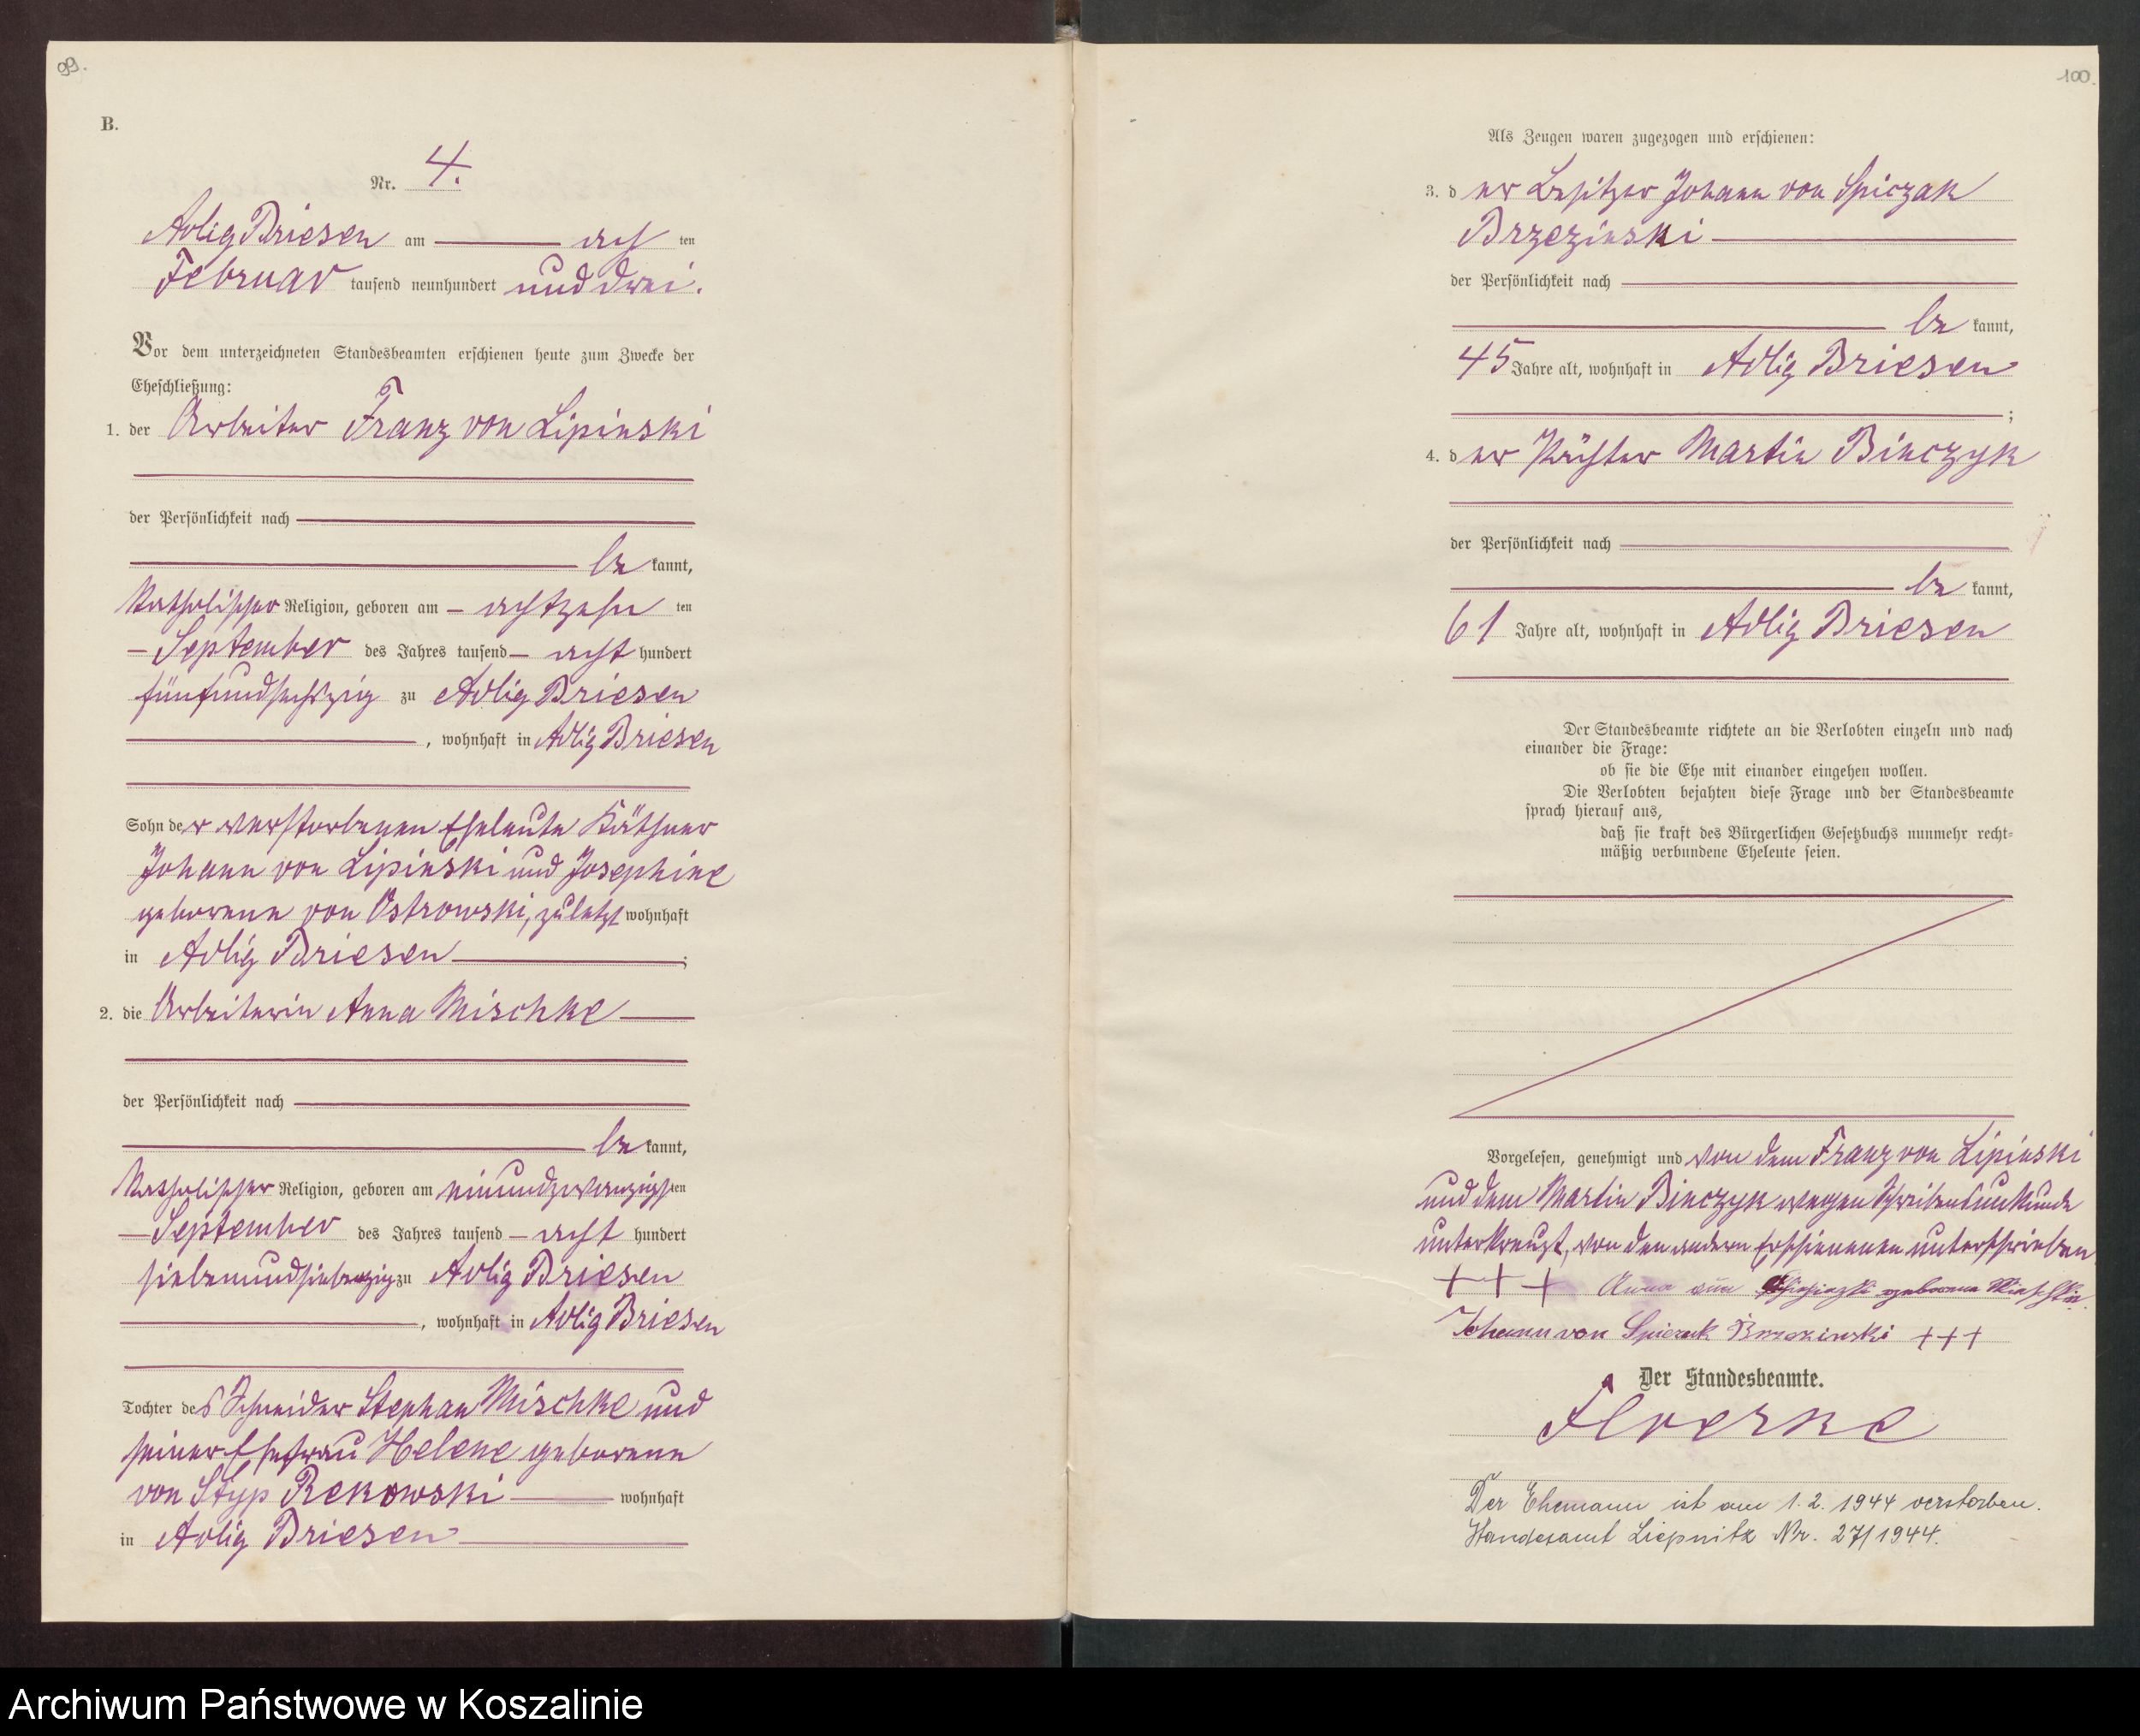 99.
B.
Nr. 4.
Adlig Briesen am acht ten
Februar tausend neunhundert und drei.
Vor dem unterzeichneten Standesbeamten erschienen heute zum Zwecke der
Eheschließung:
1. der Arbeiter Franz von Lipinski
der Persönlichkeit nach
be kannt,
katholischer Religion, geboren am achtzehn ten
September des Jahres tausend acht hundert
fünfundsechszig zu Adlig Briesen
, wohnhaft in Adlig Briesen
Sohn der verstorbenen Eheleute Käthner
Johann von Lipinski und Josephine
geborene von Ostrowski, zuletzt wohnhaft
in Adlig Briesen ;
2. die Arbeiterin Anna Mischke
der Persönlichkeit nach
be kannt,
katholischer Religion, geboren am neunundzwanzigsten
September des Jahres tausend acht hundert
siebenundsiebenzig zu Adlig Briesen
, wohnhaft in Adlig Briesen
Tochter des Schneider Stephan Mischke und
seiner Ehefrau Helene geborene
von Styp Rekowski wohnhaft
in Adlig Briesen
100.
Als Zeugen waren zugezogen und erschienen:
3. der Besitzer Johann von Spiczak
Brzezinski
der Persönlichkeit nach
be kannt,
45 Jahre alt, wohnhaft in Adlig Briesen
;
4. der Küster Martin Binczyk
der Persönlichkeit nach
be kannt,
61 Jahre alt, wohnhaft in Adlig Briesen
Der Standesbeamte richtete an die Verlobten einzeln und nach
einander die Frage:
ob sie die Ehe mit einander eingehen wollen.
Die Verlobten bejahten diese Frage und der Standesbeamte
sprach hierauf aus,
daß sie kraft des Bürgerlichen Gesetzbuchs nunmehr recht-
mäßig verbundene Eheleute seien.
Vorgelesen, genehmigt und von dem Franz von Lipinski
und dem Martin Binczyk wegen Schreibensunkunde
unterkreuzt, von den andern Erschienenen unterschrieben
+ + + Anna geborene Mischke.
Johann von Spiczak Brzezinski +++
Der Standesbeamte.
Der Ehemann ist am 1.2.1944 verstorben.
Standesamt Liepnitz Nr. 27/1944.
Archiwum Państwowe w Koszalinie